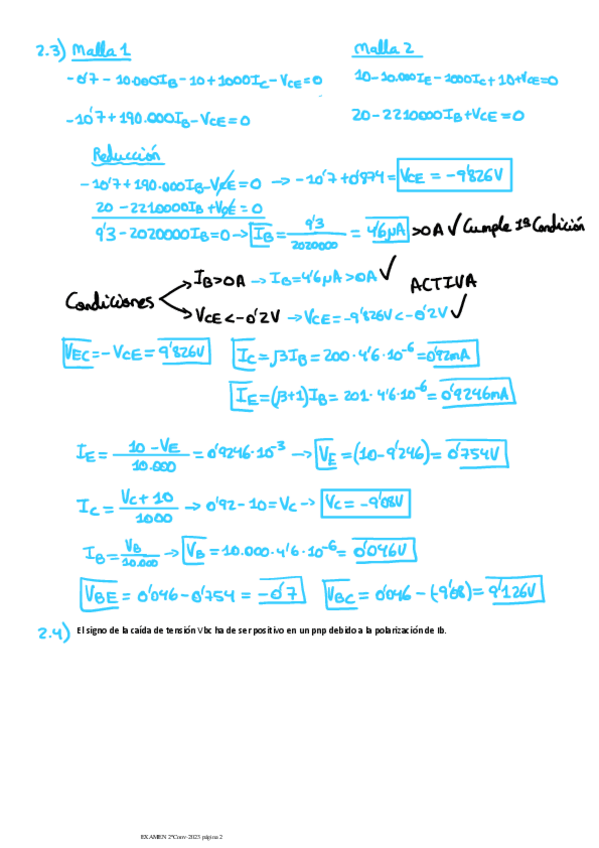 2.3) Malla 1
-0'7 - 10.000IB - 10 + 1000IC - VCE = 0
-10'7 + 190.000IB - VCE = 0
Malla 2
10 - 10.000IE - 1000IC + 10 + VCE = 0
20 - 2210000IB + VCE = 0
Reducción
-10'7 + 190.000IB - VCE = 0 → -10'7 + 0'874 = VCE = -9'826V
20 - 2210000IB + VCE = 0
9'3 - 2020000IB = 0 → IB = 9'3 / 2020000 = 4'6µA > 0A ✓ Cumple 1ª Condición
Condiciones
IB > 0A → IB = 4'6µA > 0A ✓
VCE < -0'2V → VCE = -9'826V < -0'2V ✓
ACTIVA
VEC = -VCE = 9'826V
IC = βIB = 200 · 4'6 · 10^-6 = 0'92mA
IE = (β+1)IB = 201 · 4'6 · 10^-6 = 0'9246mA
IE = 10 - VE / 10.000 = 0'9246 · 10^-3 → VE = (10 - 9'246) = 0'754V
IC = VC + 10 / 1000 → 0'92 - 10 = VC → VC = -9'08V
IB = VB / 10.000 → VB = 10.000 · 4'6 · 10^-6 = 0'046V
VBE = 0'046 - 0'754 = -0'7
VBC = 0'046 - (-9'08) = 9'126V
2.4) El signo de la caída de tensión Vbc ha de ser positivo en un pnp debido a la polarización de Ib.
EXAMEN 2ªConv-2023 página 2